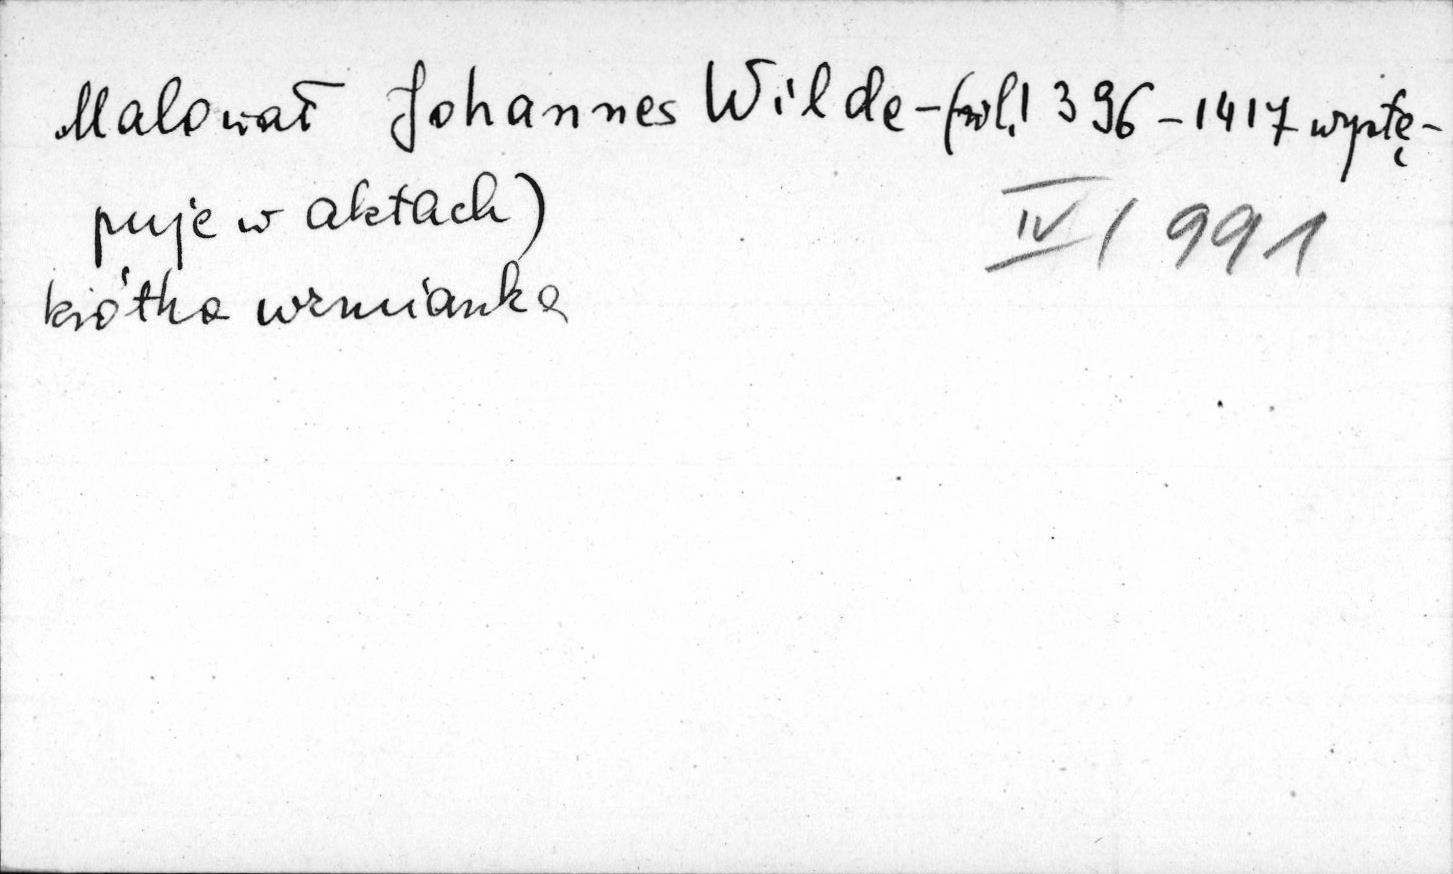 Malował Johannes Wilde - (wl. 1396 - 1417 wystę-
puje w aktach)
IV / 991
krótka wzmianka